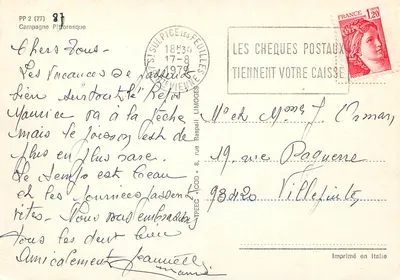 PP 2 (77) 87
Campagne Pittoresque
Chers Tous -
Les vacances se passent
bien surtout le repos
Maurice va à la pêche
mais le poisson est de
plus en plus rare.
Le temps est beau
et les journées passent
vites - Nous vous embrassons
tous les deux bien
amicalement
ST SULPICE les FEUILLES
18H30
17-8
1979
HTE VIENNE
LES CHEQUES POSTAUX
TIENNENT VOTRE CAISSE
FRANCE 1,20
LIMOGES
M et Mme J.
19 rue
93420 Villepinte
Imprimé en Italie